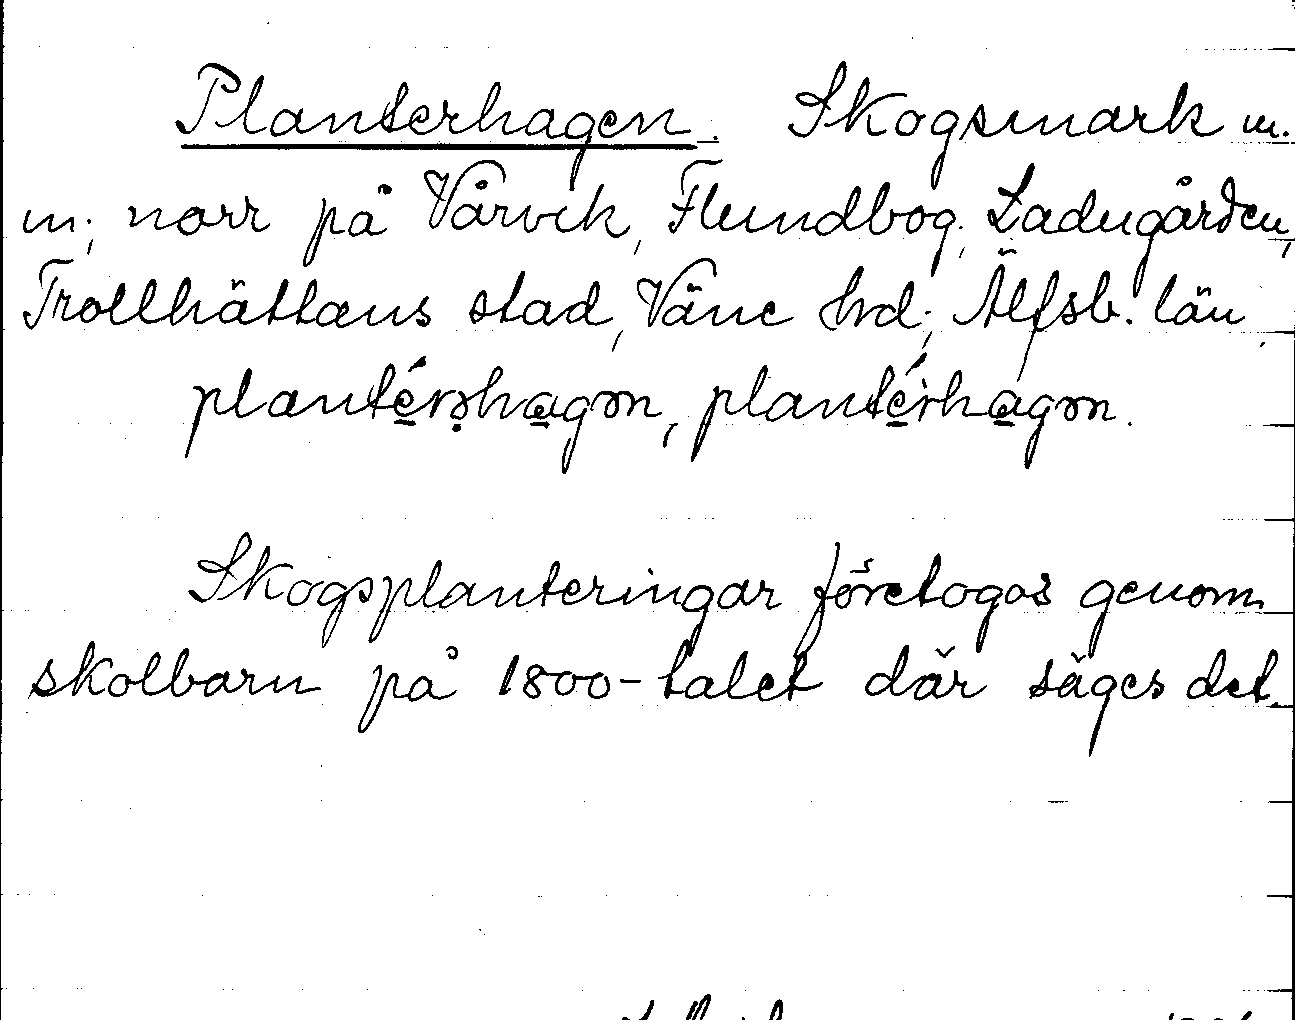 Planterhagen. Skogsmark m.
m., norr på Vårvik, Flundbog, Ladugården,
Trollhättans stad, Väne hd., Älfsb. län
plantérshagən, plantérhagən.
Skogsplanteringar företogos genom
skolbarn på 1800-talet där säges det.